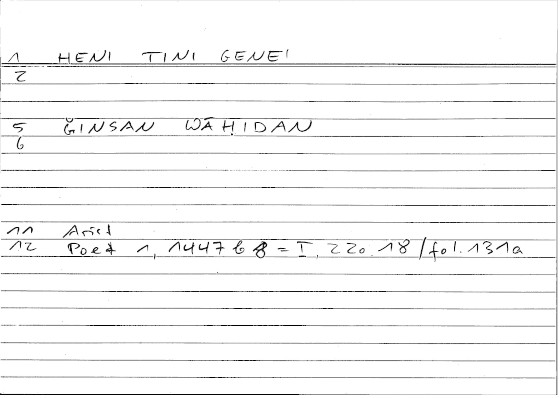 1 HENI TINI GENEI
2
5 ĞINSAN WĀḤIDAN
6
11 Arist
12 Poet 1, 1447 b 8 = I, 220.18 / fol. 131a